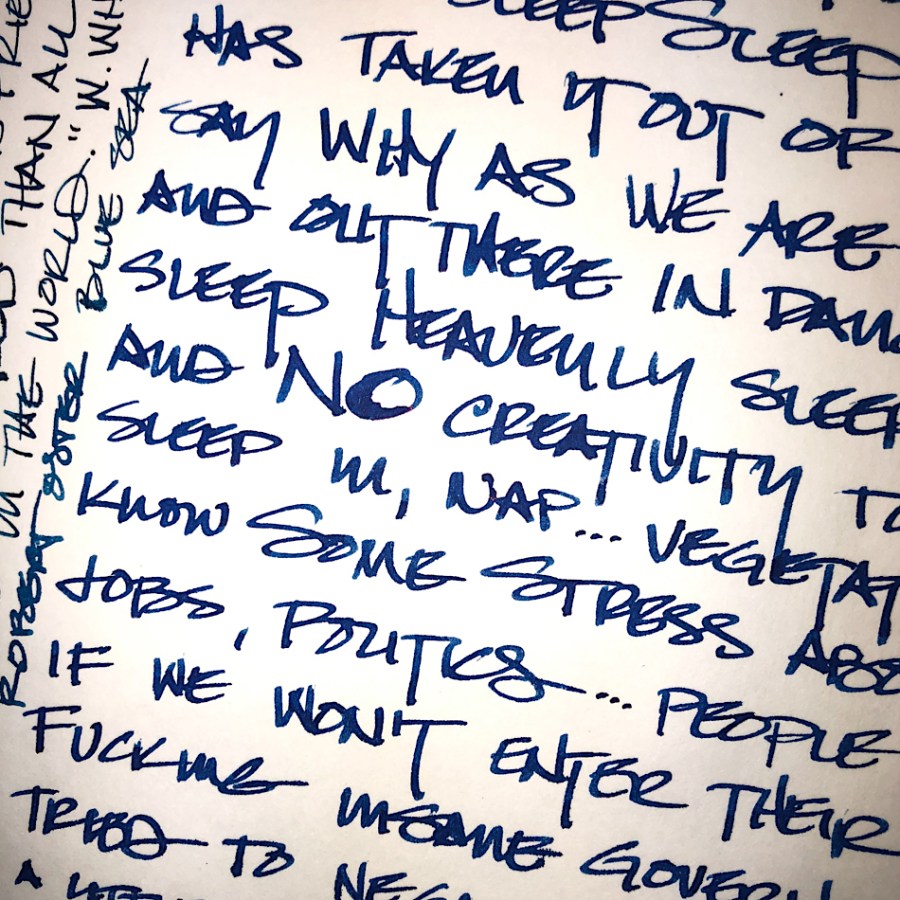 SLEEP SLEEP
HAS TAKEN IT OUT OR
SAY WHY AS WE ARE
AND OUT THERE IN DANG
SLEEP HEAVENLY SLEEP
AND NO CREATIVITY TO
SLEEP IN, NAP... VEGETAT
KNOW SOME STRESS ABO
JOBS, POLITICS... PEOPLE
IF WE WON'T ENTER THEIR
FUCKING INSANE GOVERN
TRIED TO NEG
A
THAN ALL
IN THE WORLD." W. WH
ROBERT OSTER BLUE SEA